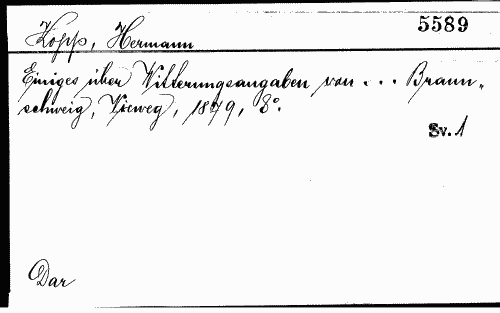 Kopp, Hermann
5589
Einiges über Witterungsangaben von ... Braun-
schweig, Vieweg, 1879, 8°.
Sv. 1
Dar